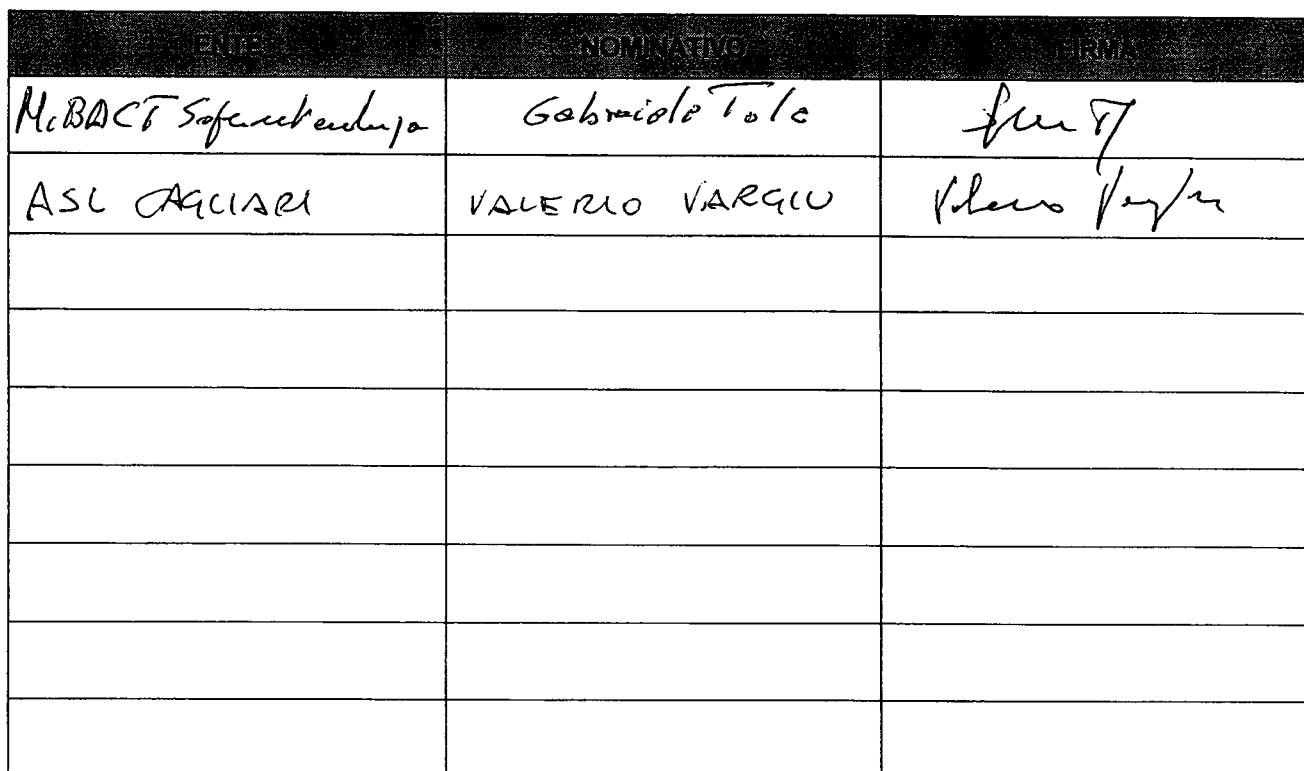 ENTE NOMINATIVO FIRMA
MiBACT Soprintendenza Gabriele Tola
ASL CAGLIARI VALERIO VARGIU Valerio Vargiu